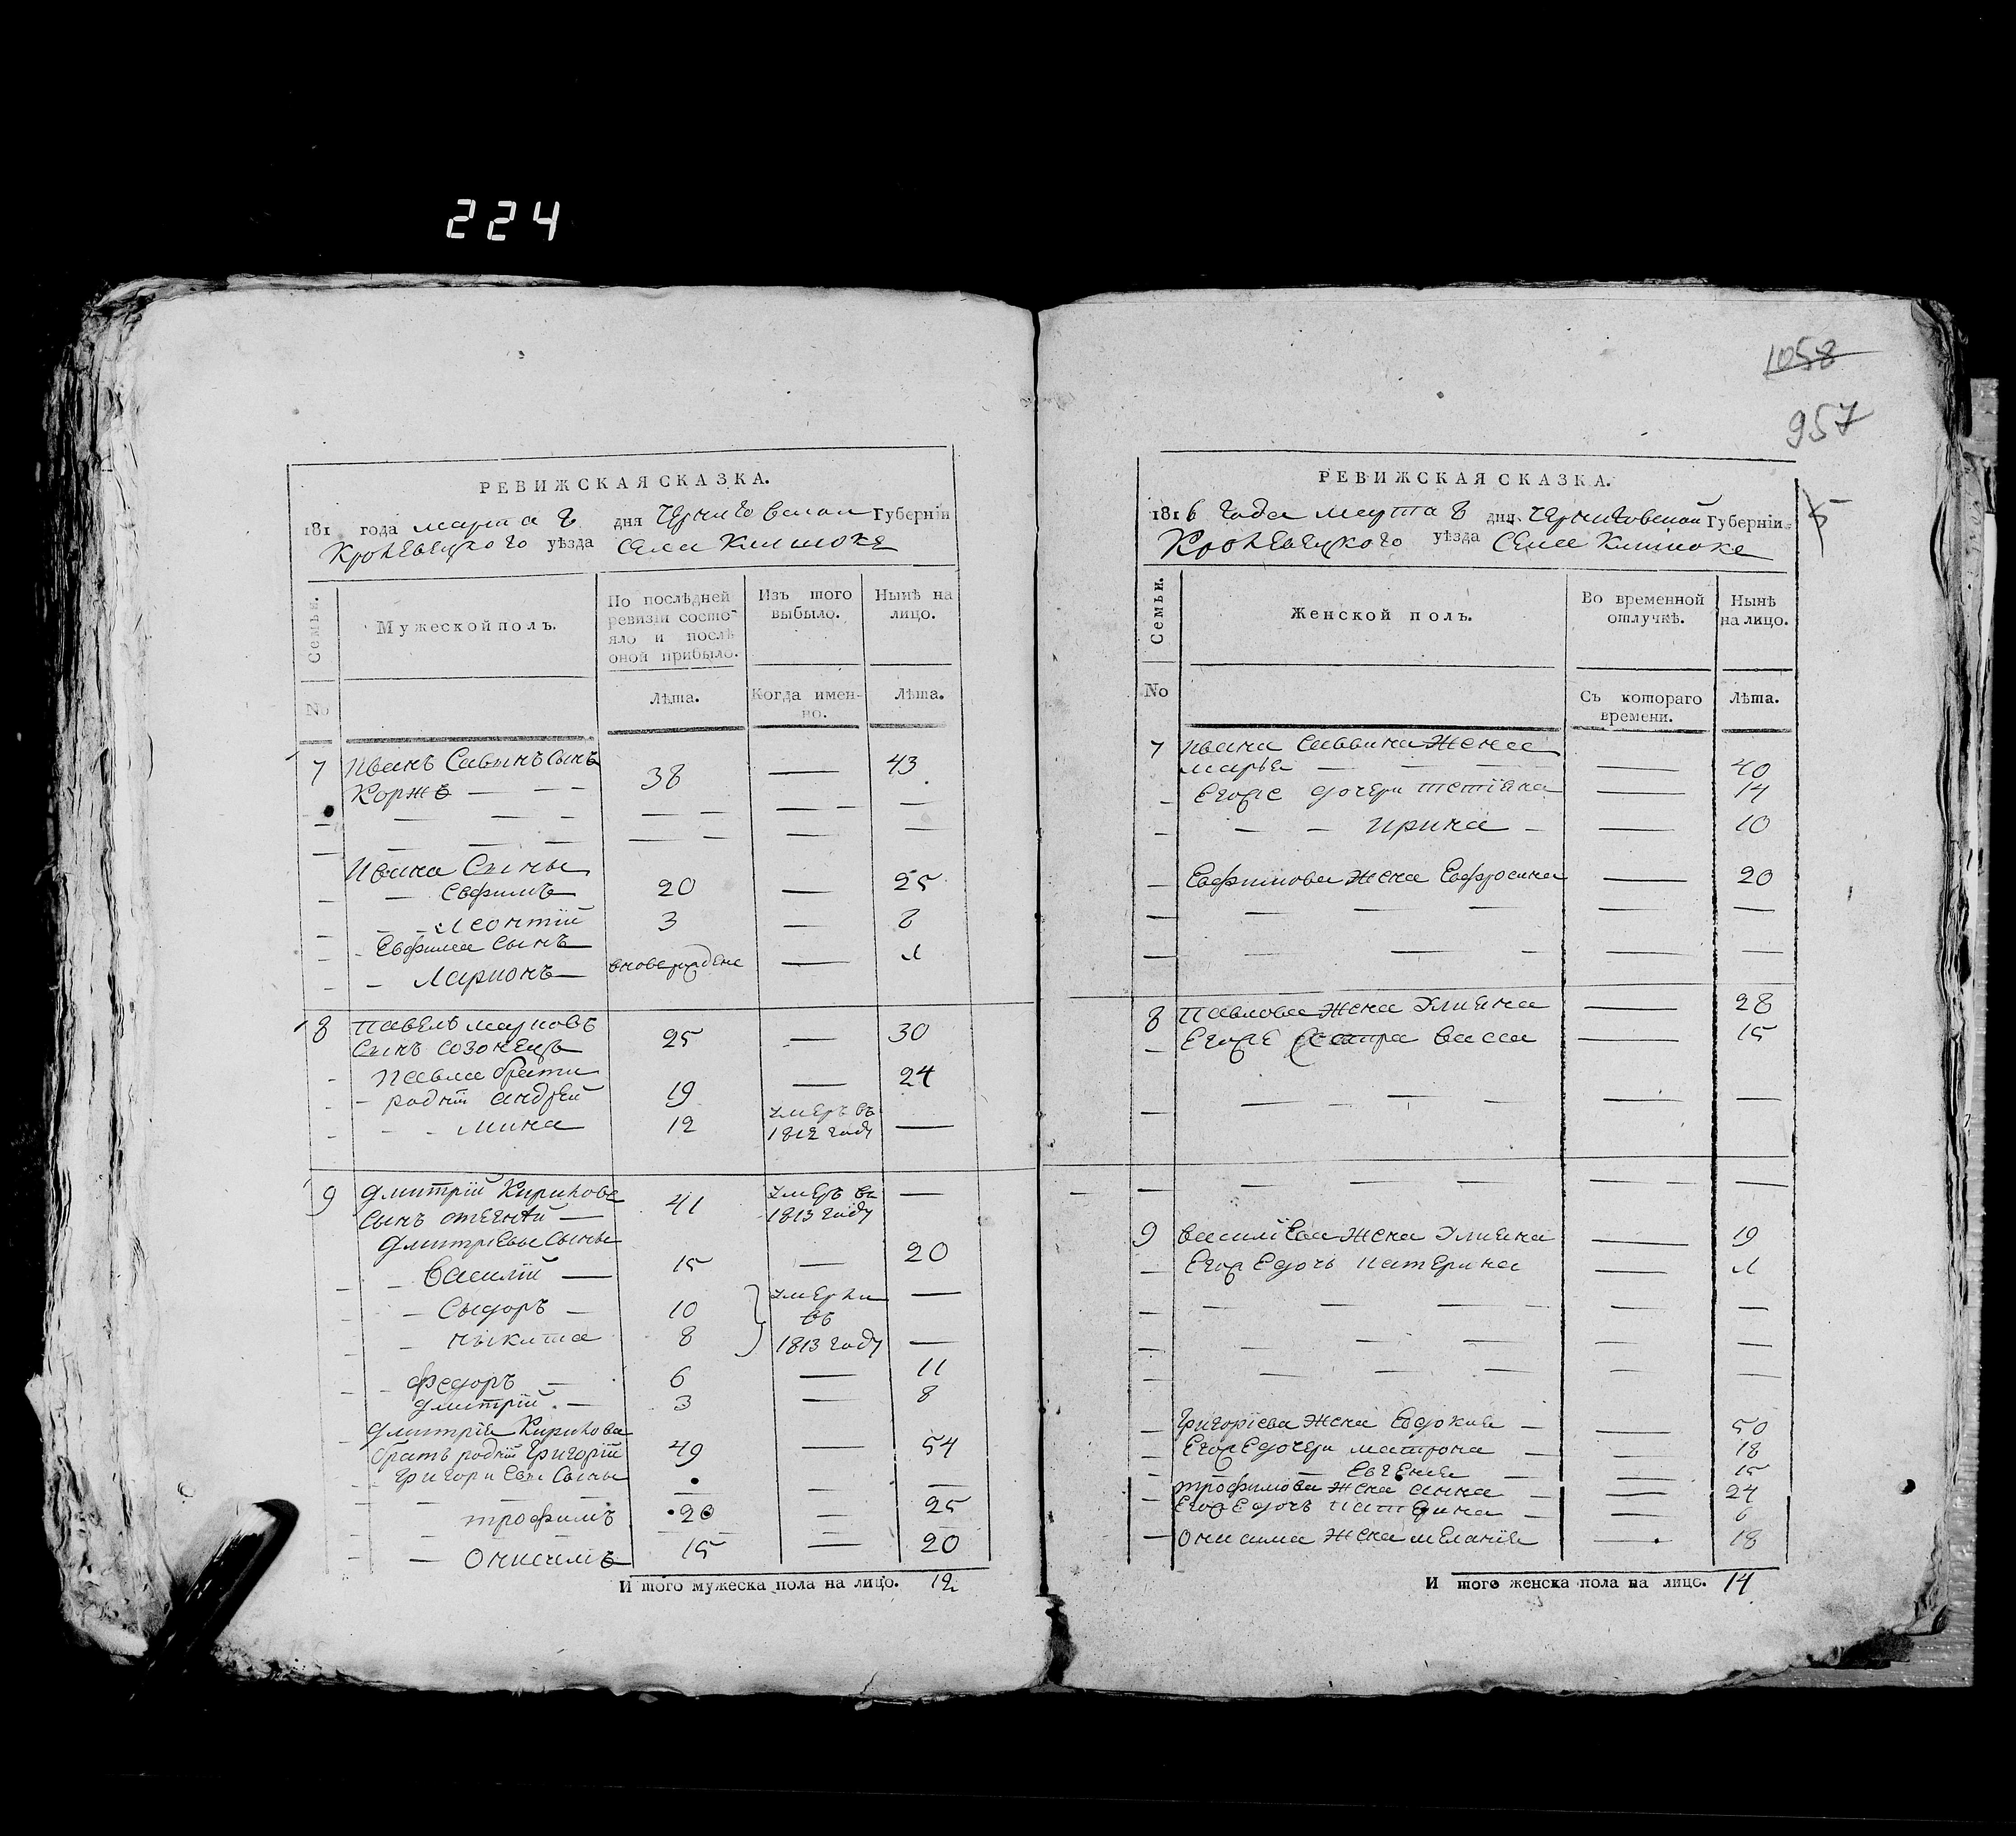 224
1058
957
РЕВИЖСКАЯ СКАЗКА.
181 года марта 8 дня Черниговской Губернїи
Кролевецкого уѣзда села Клишокъ
Семьи.
Мужеской полъ.
По послѣдней ревизїи состояло и послѣ оной прибыло.
Изъ того выбыло.
Нынѣ на лицо.
No
Лѣта.
Когда именно.
Лѣта.
7 Иванъ Савинъ сынъ
Коржъ — 38 — 43
Ивана Сыны
Евфимъ 20 — 25
Леонтїй 3 — 8
Евфима сынъ
Ларионъ — 
8 Павелъ Марковъ 25 — 30
Сынъ Созонецъ
Павла брати
родни Андрей 19 — 24
Мина 12 умеръ въ 1812 году —
9 Дмитрїй Кириловъ 41 умеръ въ 1813 году —
Сынъ
Дмитрїевы Сыны
Василїй — 15 — 20
Сыдоръ — 10 умерли въ —
Никита 8 1813 году —
Федоръ — 6 — 11
Дмитрїй — 3 — 8
Дмитрїя Кирилова
братъ роднїй Григорїй 49 — 54
Григориевы Сыны
Трофимъ 20 — 25
Онисимъ 15 — 20
И того мужеска пола на лицо. 12
РЕВИЖСКАЯ СКАЗКА.
1816 года марта 8 дня Черниговской Губернїи 5
Кролевецкого уѣзда Села Клишокъ
Семьи.
Женской полъ.
Во временной отлучкѣ.
Нынѣ на лицо.
No
Съ котораго времени.
Лѣта.
7 Ивана Саввина Жена
Марья — 40
Егоже дочери Тетїяна — 14
Ирина — 10
Евфимова Жена Евфросина — 20
8 Павлова Жена Улияна — 28
Егоже Сестра Васса — 15
9 Василїева Жена Улияна — 19
Егоже дочь Катерина — 1
Григорїева Жена Евдокия — 50
Егоже дочери Матрона — 18
Евгения — 15
Трофимова Жена Анна — 24
Егоже дочь Катерина — 6
Онисима Жена Меланїя — 18
И того женска пола на лицо. 14